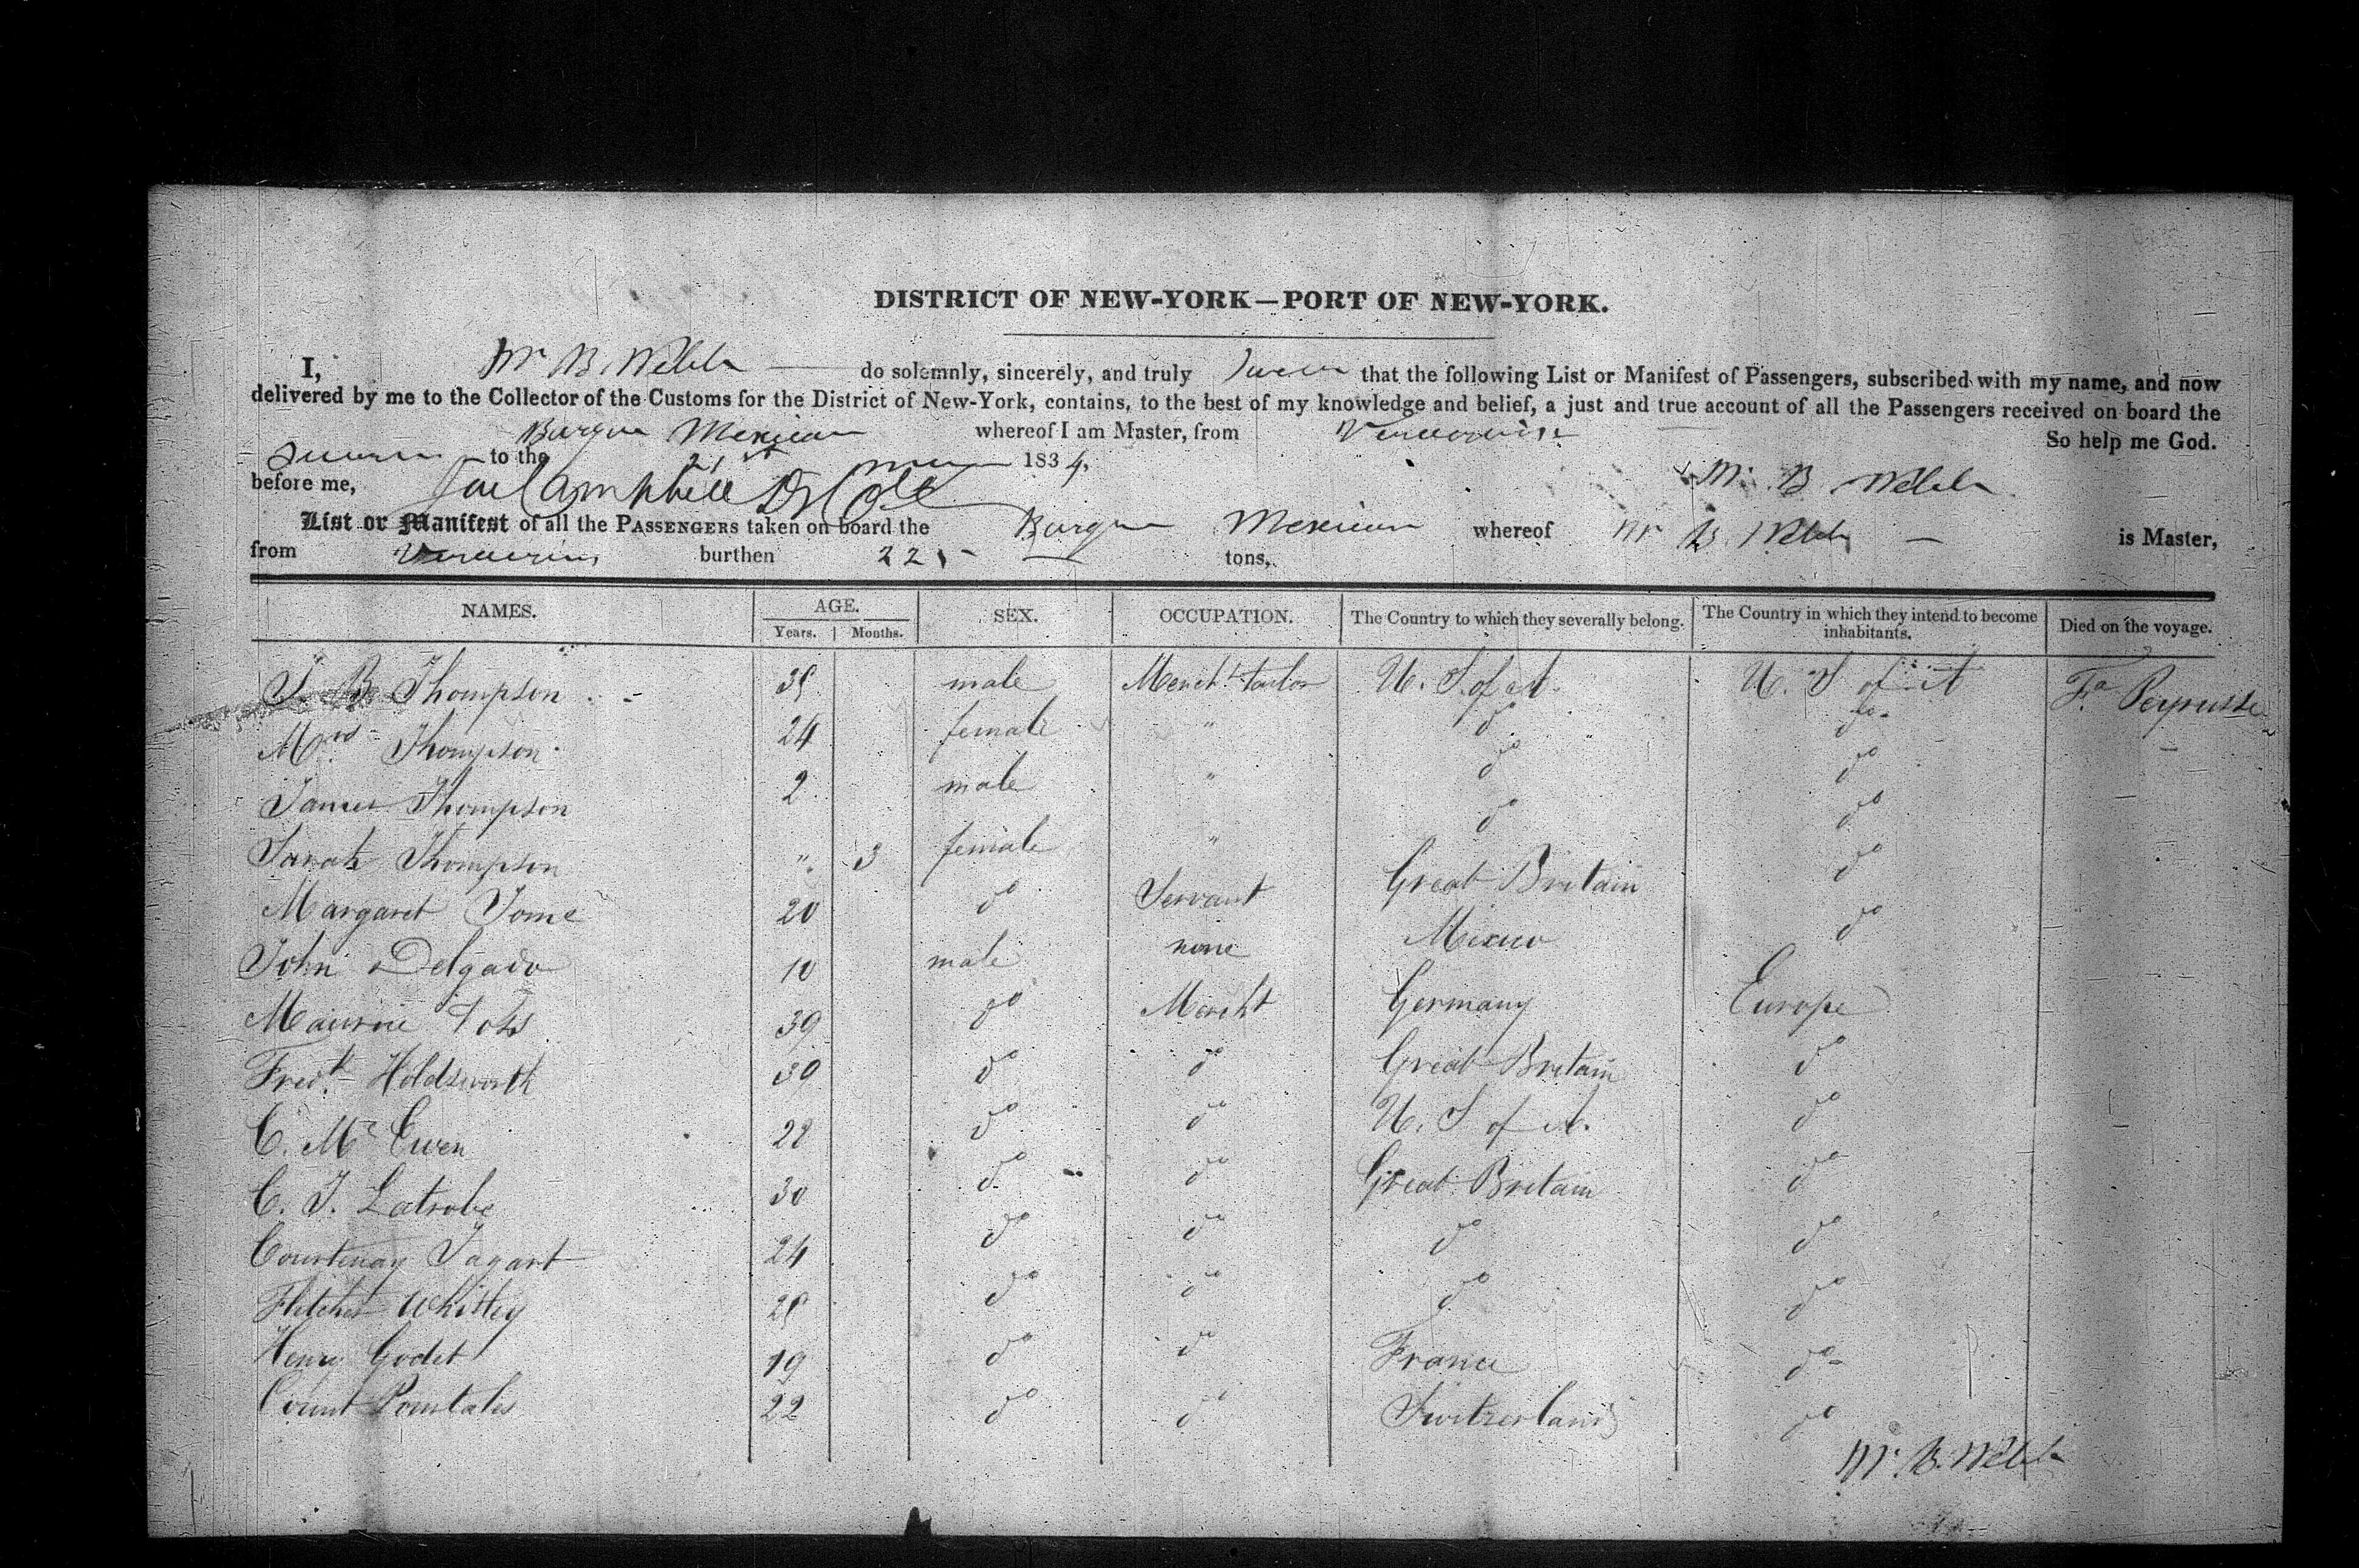 DISTRICT OF NEW-YORK—PORT OF NEW-YORK.
I, M B. Webb — do solemnly, sincerely, and truly swear that the following List or Manifest of Passengers, subscribed with my name, and now
delivered by me to the Collector of the Customs for the District of New-York, contains, to the best of my knowledge and belief, a just and true account of all the Passengers received on board the
Barque Mexican whereof I am Master, from Veracruz So help me God.
Sworn to the 21st may 1834,
before me, M. B Webb
List or Manifest of all the PASSENGERS taken on board the Barque Mexican whereof M B. Webb — is Master,
from burthen 22 tons,
NAMES. AGE. SEX. OCCUPATION. The Country to which they severally belong. The Country in which they intend to become inhabitants. Died on the voyage.
Years. Months.
B Thompson male Mercht tailor U. S. of A. U. S of A Fa Peyrusse
Mrs Thompson 24 female " do do
James Thompson 2 male " do do
Sarah Thompson " 3 female " do do
Margaret Tome 20 do Servant Great Britain do
John Delgado 10 male none Mexico do
Maurice 39 do Mercht Germany Europe
Fredk Holdsworth 30 do do Great Britain do
C. Mc Ewen 22 do do U. S of A. do
C. J. Latrobe 30 do do Great Britain do
Courtenay Tagart 24 do do do do
Fletcher Whitley do do do do
Henry Godet 19 do do France do
Count Pourtales 22 do do Switzerland do
M. B. Webb